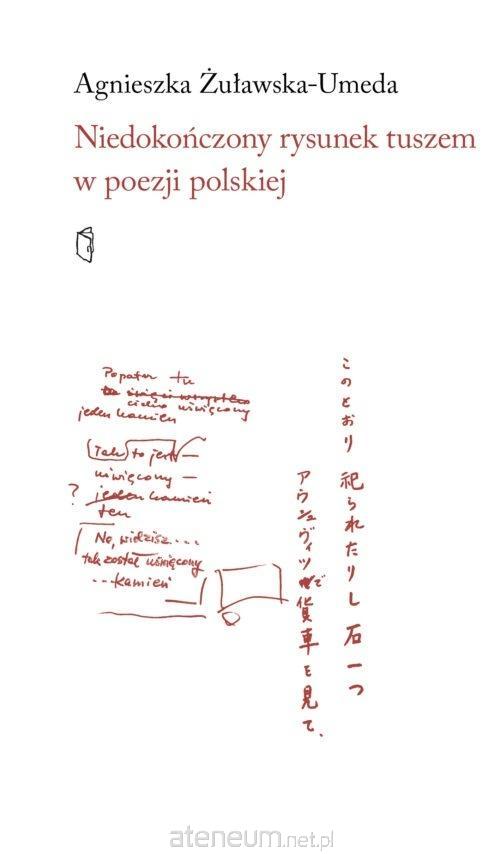 Agnieszka Żuławska-Umeda
Niedokończony rysunek tuszem
w poezji polskiej
Popatrz tu
ciało uświęcony
jeden kamień
(Tak) to jest —
uświęcony —
? jeden kamień
ten
No, widzisz...
tak został uświęcony
...kamień
このとおり 祀られたりし 石一つ
アウシュヴィツで貨車を見て、
ateneum.net.pl